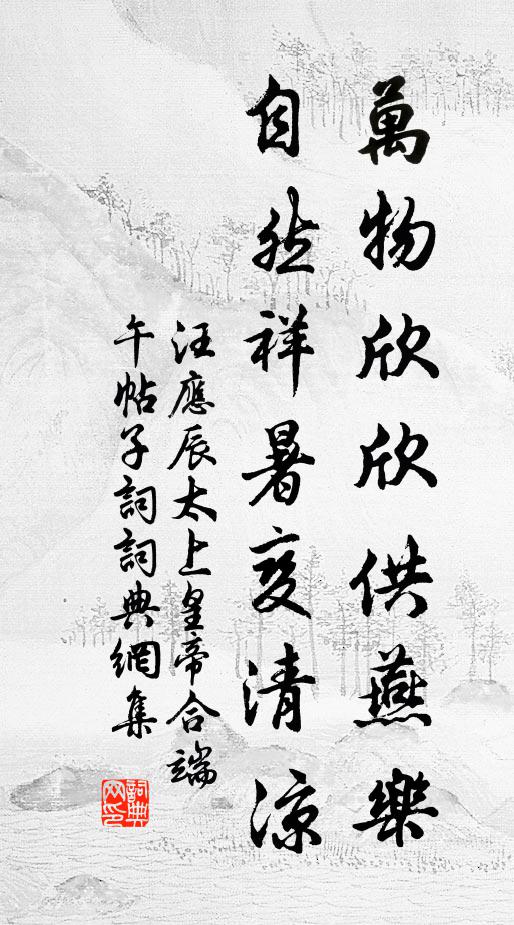 萬物欣欣供燕樂
自然祥暑變清涼
汪應辰太上皇帝合端
午帖子詞詞典網集
詞典网印